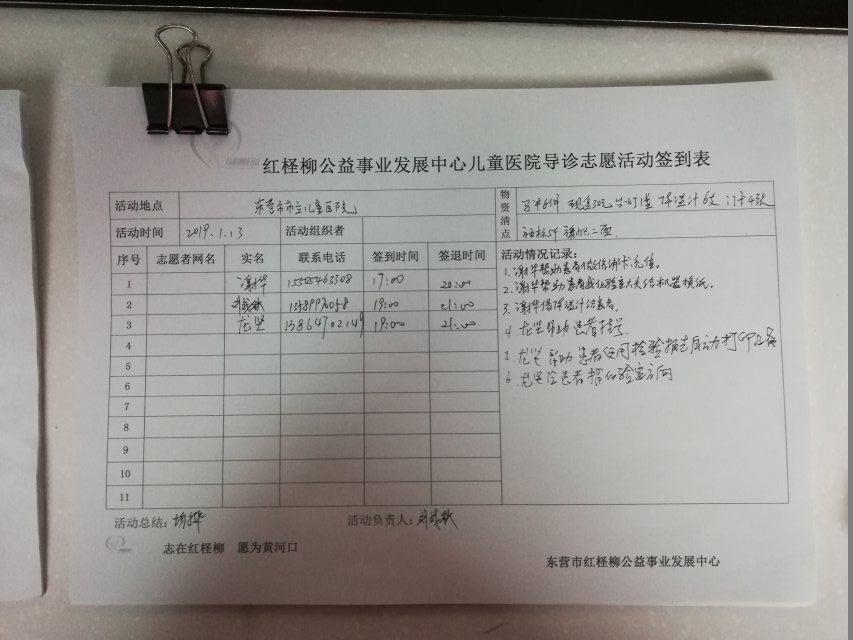 红柽柳公益事业发展中心儿童医院导诊志愿活动签到表
活动地点 东营市市立儿童医院
物资清点 马甲61件 现金50元 台灯1盏 体温计6支 门卡4张
活动时间 2019.1.13 活动组织者
序号 志愿者网名 实名 联系电话 签到时间 签退时间
1 谢华 17:00 20:00
2 19:00 21:00
3 龙坚 13864702149 19:00 21:00
4
5
6
7
8
9
10
11
活动情况记录:
1.谢华帮助患者微信绑卡、充值。
2.谢华帮助患者 化验室大夫给机器换纸。
3.谢华借体温计给患者。
4.龙坚帮助患者挂号
5.龙坚帮助患者使用检验报告自动打印设备
6.龙坚给患者指化验室方向
活动总结:谢华 活动负责人:
志在红柽柳 愿为黄河口
东营市红柽柳公益事业发展中心